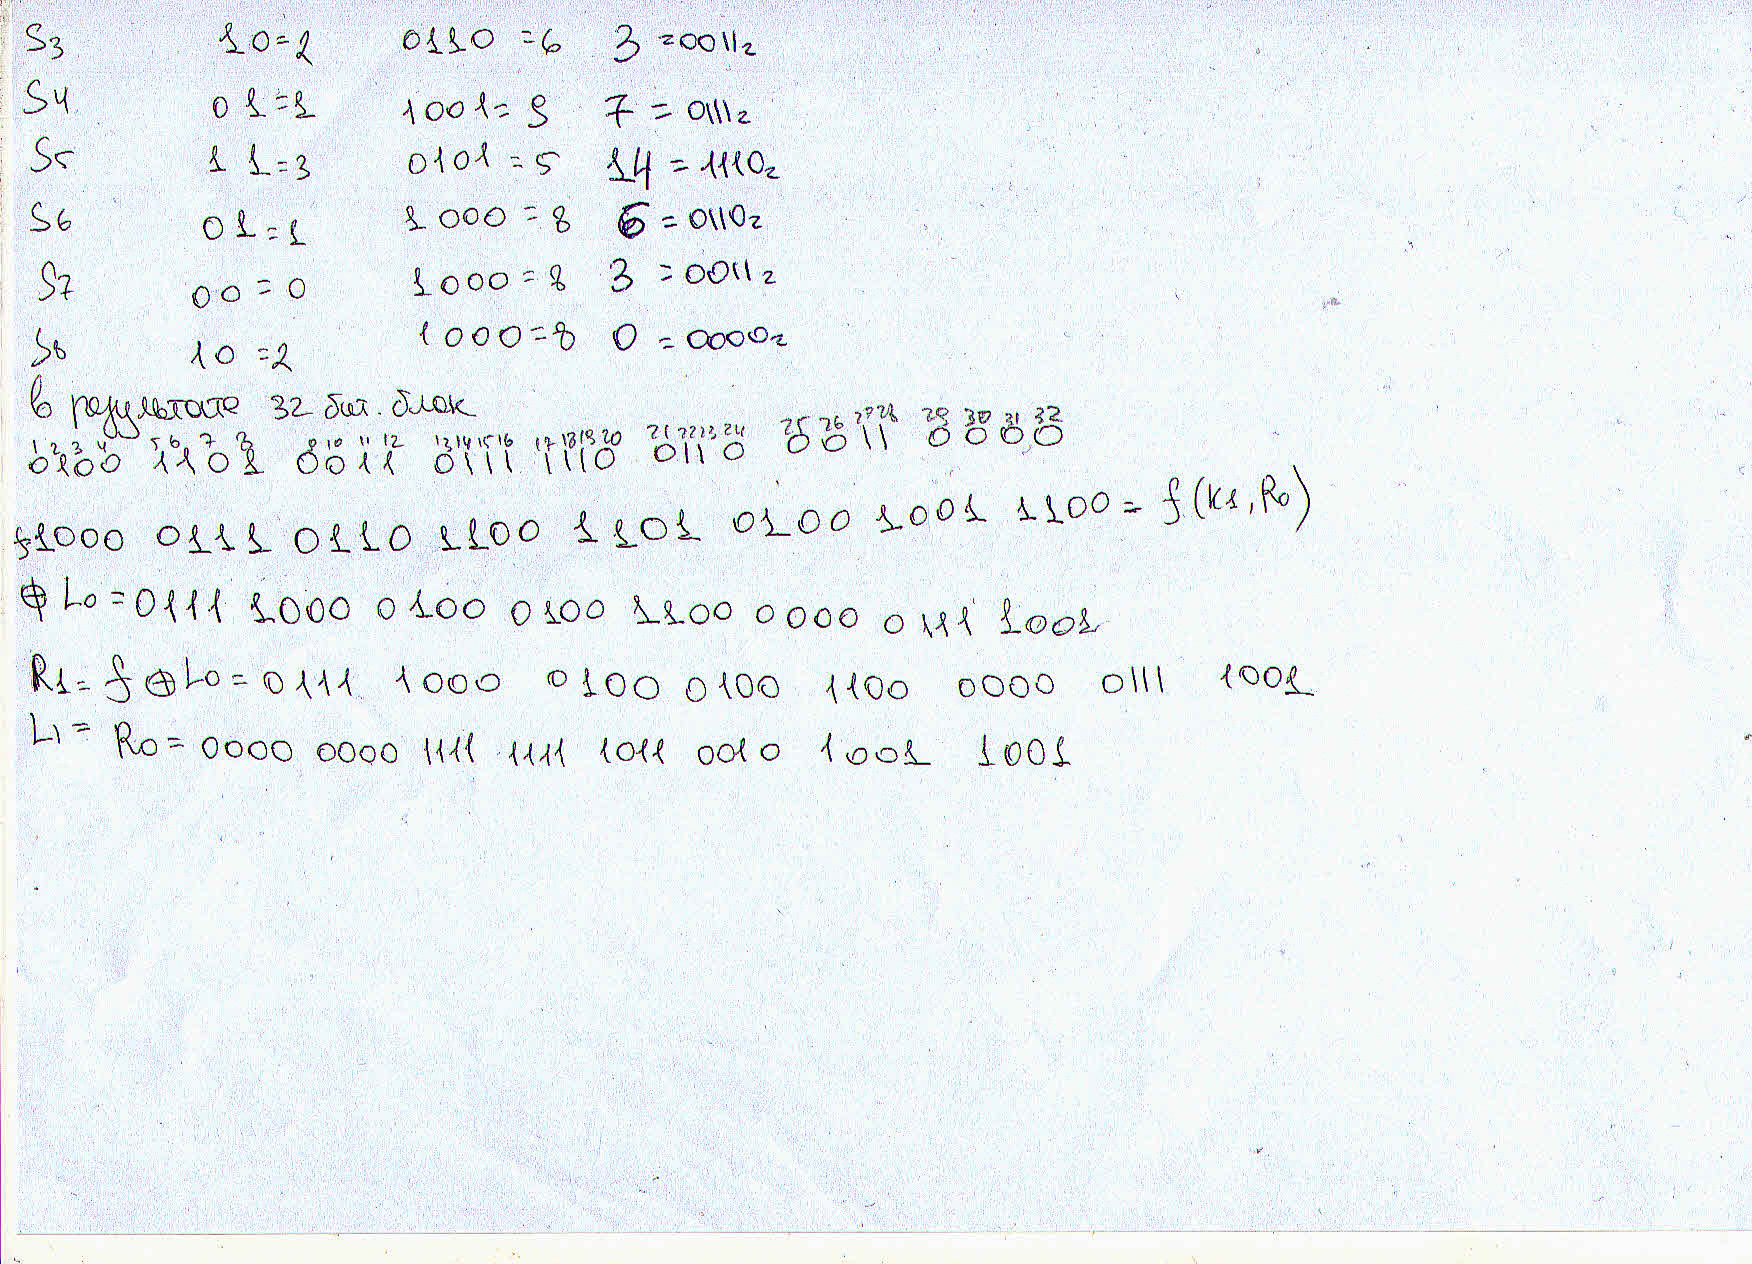 S3 10=2 0110=6 3=0011₂
S4 01=1 1001=9 7=0111₂
S5 11=3 0101=5 14=1110₂
S6 01=1 1000=8 6=0110₂
S7 00=0 1000=8 3=0011₂
S8 10=2 1000=8 0=0000₂
в результате 32 бит. блок
1 2 3 4 5 6 7 8 9 10 11 12 13 14 15 16 17 18 19 20 21 22 23 24 25 26 27 28 29 30 31 32
0100 1101 0011 0111 1110 0110 0011 0000
1000 0111 0110 1100 1101 0100 1001 1100 = f(K1, R0)
⊕ L0 = 0111 1000 0100 0100 1100 0000 0111 1001
R1 = f ⊕ L0 = 0111 1000 0100 0100 1100 0000 0111 1001
L1 = R0 = 0000 0000 1111 1111 1011 0010 1001 1001